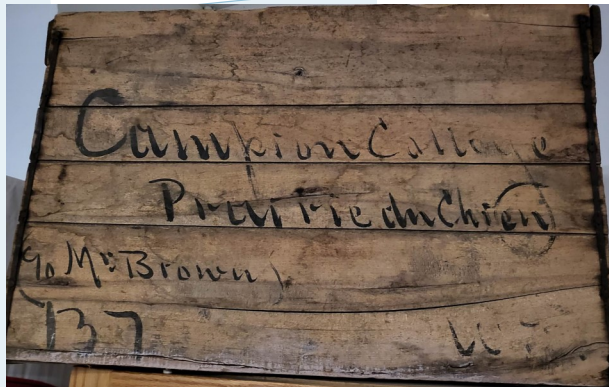 Campion College
Prairie du Chien
c/o Mr Brown
737 W